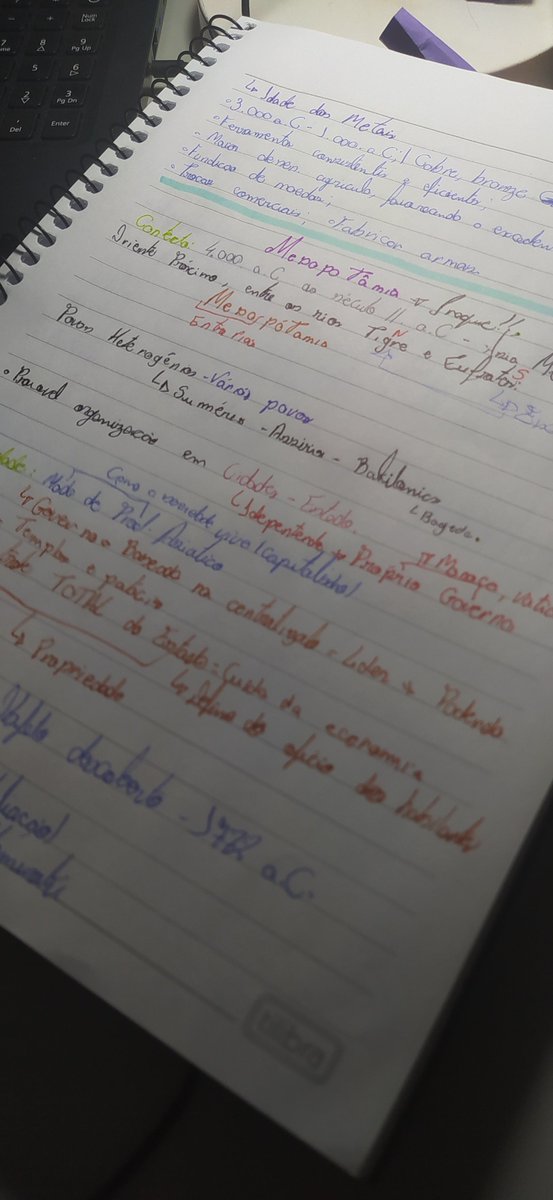 Num Lock
7
8
9
Pg Up
5
6
2
3
Pg Dn
Del
Enter
↳ Idade dos Metais
• 3.000 a.C - 1.000 a.C; | Cobre, bronze
• Ferramentas consistentes e eficientes;
• Maior desen. agrícola,
• Fundição de moedas;
• Trocas comerciais; • Fabricar armas
Mesopotâmia → Iraque!!
Contexto: 4.000 a.C ao século II a.C -
Oriente Próximo, entre os rios Tigre e Eufrates.
↳ Mesopotâmia
Entre Rios
Povos Heterogênios - Vários povos
↳ Sumérios - Assíria - Babilônico
↳ Bagda.
• organização em Cidades - Estado.
↳ Independente → Próprio Governo
Como a sociedade vive (capitalismo)
Modo de Prod. Asiático
↳ Governo Baseado na centralizado = Líder + Poderoso
Templos e palácio
TOTAL do Estado = Cuida da economia
↳ Define do ofício dos habitantes
↳ Propriedade
descoberto - 1772 a.C.
tilibra